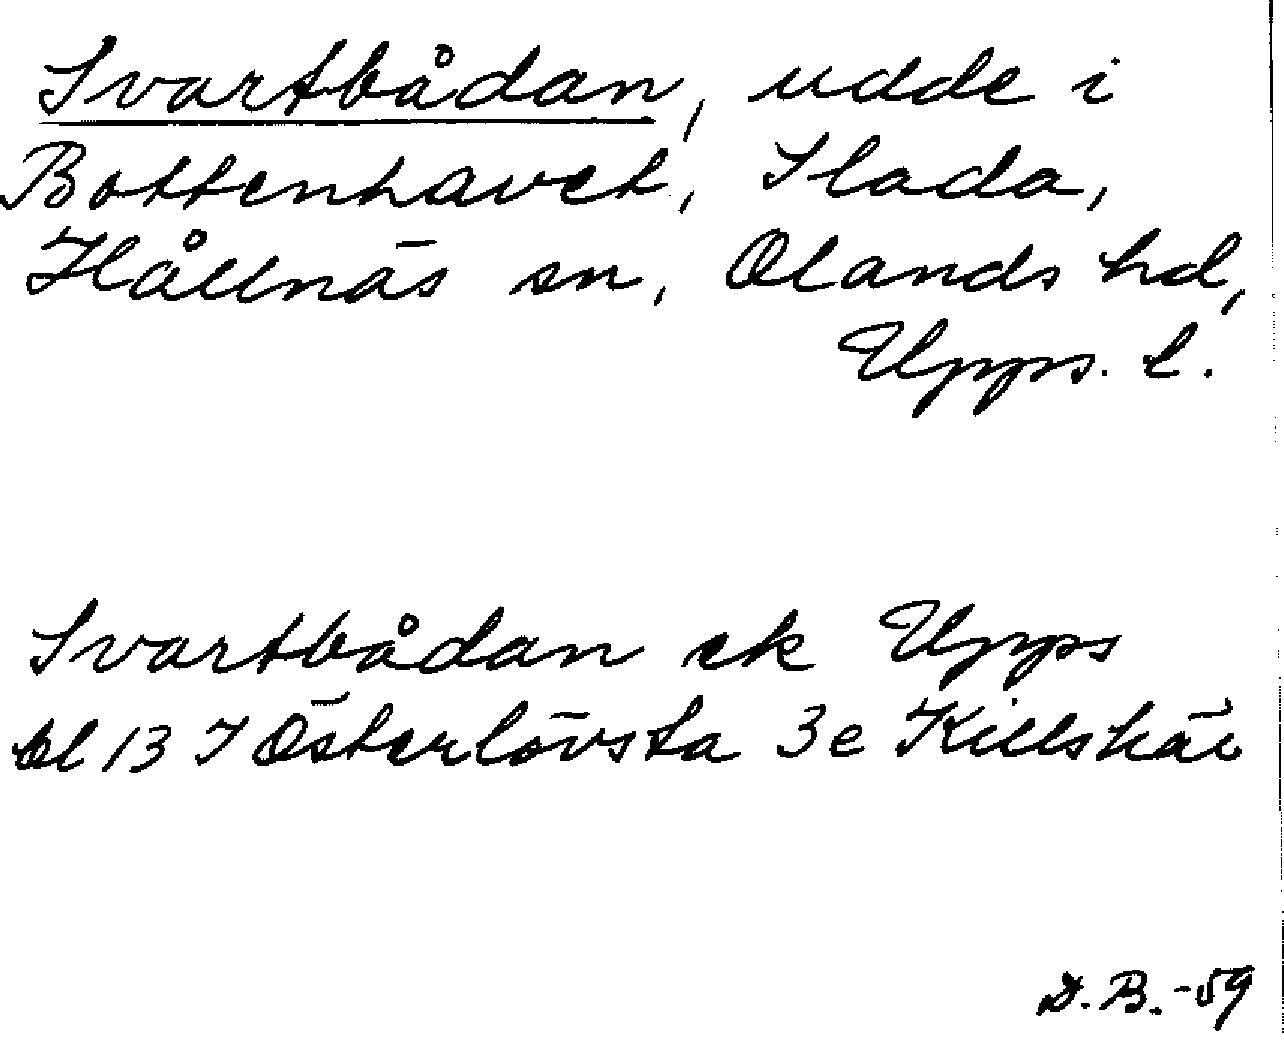 Svartbådan, udde i
Bottenhavet, Slada,
Hållnäs sn, Olands hd,
Upps. l.
Svartbådan ek Upps
bl 13 I Österlövsta 3e Killskär
D.B.-59